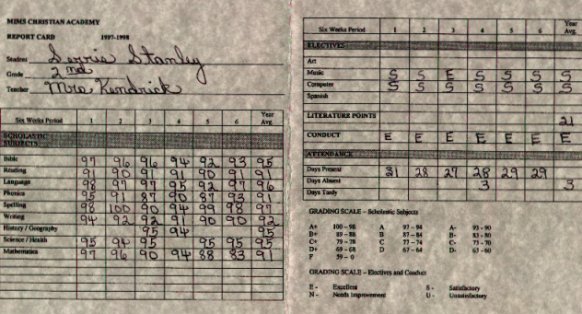 MIMS CHRISTIAN ACADEMY
REPORT CARD 1997-1998
Student Stanley
Grade 2nd
Teacher Mrs Kendrick
Six Weeks Period 1 2 3 4 5 6 Year Avg.
SCHOLASTIC SUBJECTS
Bible 97 96 96 94 92 93 95
Reading 91 90 91 91 90 91 91
Language 98 97 97 95 92 97 96
Phonics 95 91 87 90 87 93 91
Spelling 98 100 90 94 98 97
Writing 94 92 92 91 90 90 92
History / Geography 95 94 95
Science / Health 95 94 95 95 95 95
Mathematics 97 96 90 94 88 83 91
Six Weeks Period 1 2 3 4 5 6 Year Avg.
ELECTIVES
Art
Music S S E S S S S
Computer S S S S S S S
Spanish
LITERATURE POINTS 21
CONDUCT E E E E E E E
ATTENDANCE
Days Present 31 28 27 28 29 29
Days Absent 3 3
Days Tardy
GRADING SCALE - Scholastic Subjects
A+ 100 - 98 A 97 - 94 A- 93 - 90
B+ 89 - 88 B 87 - 84 B- 83 - 80
C+ 79 - 78 C 77 - 74 C- 73 - 70
D+ 69 - 68 D 67 - 64 D- 63 - 60
F 59 - 0
GRADING SCALE - Electives and Conduct
E - Excellent S - Satisfactory
N - Needs Improvement U - Unsatisfactory